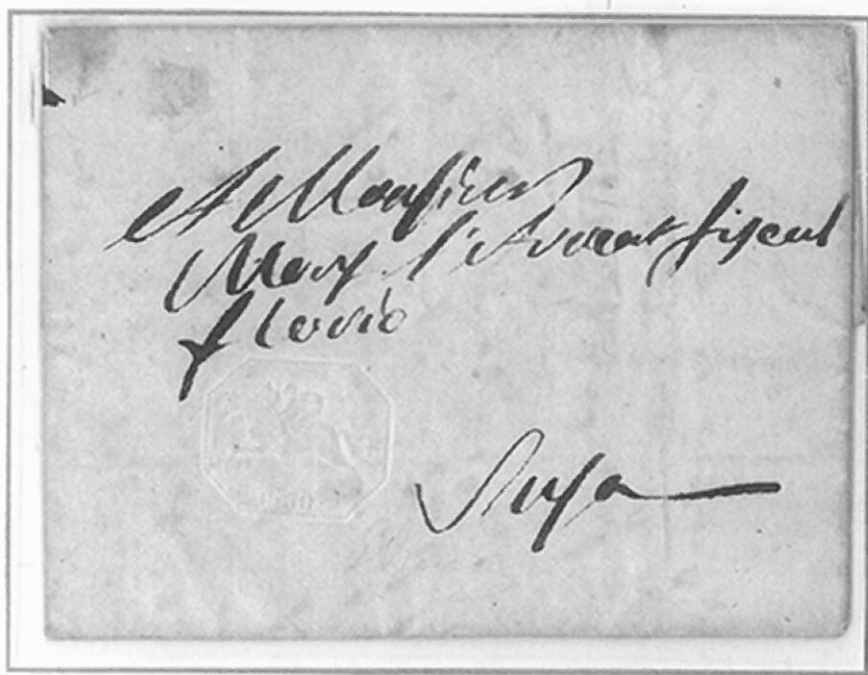 A Monsieur
Mons l'Avocat fiscal
flavio
Susa